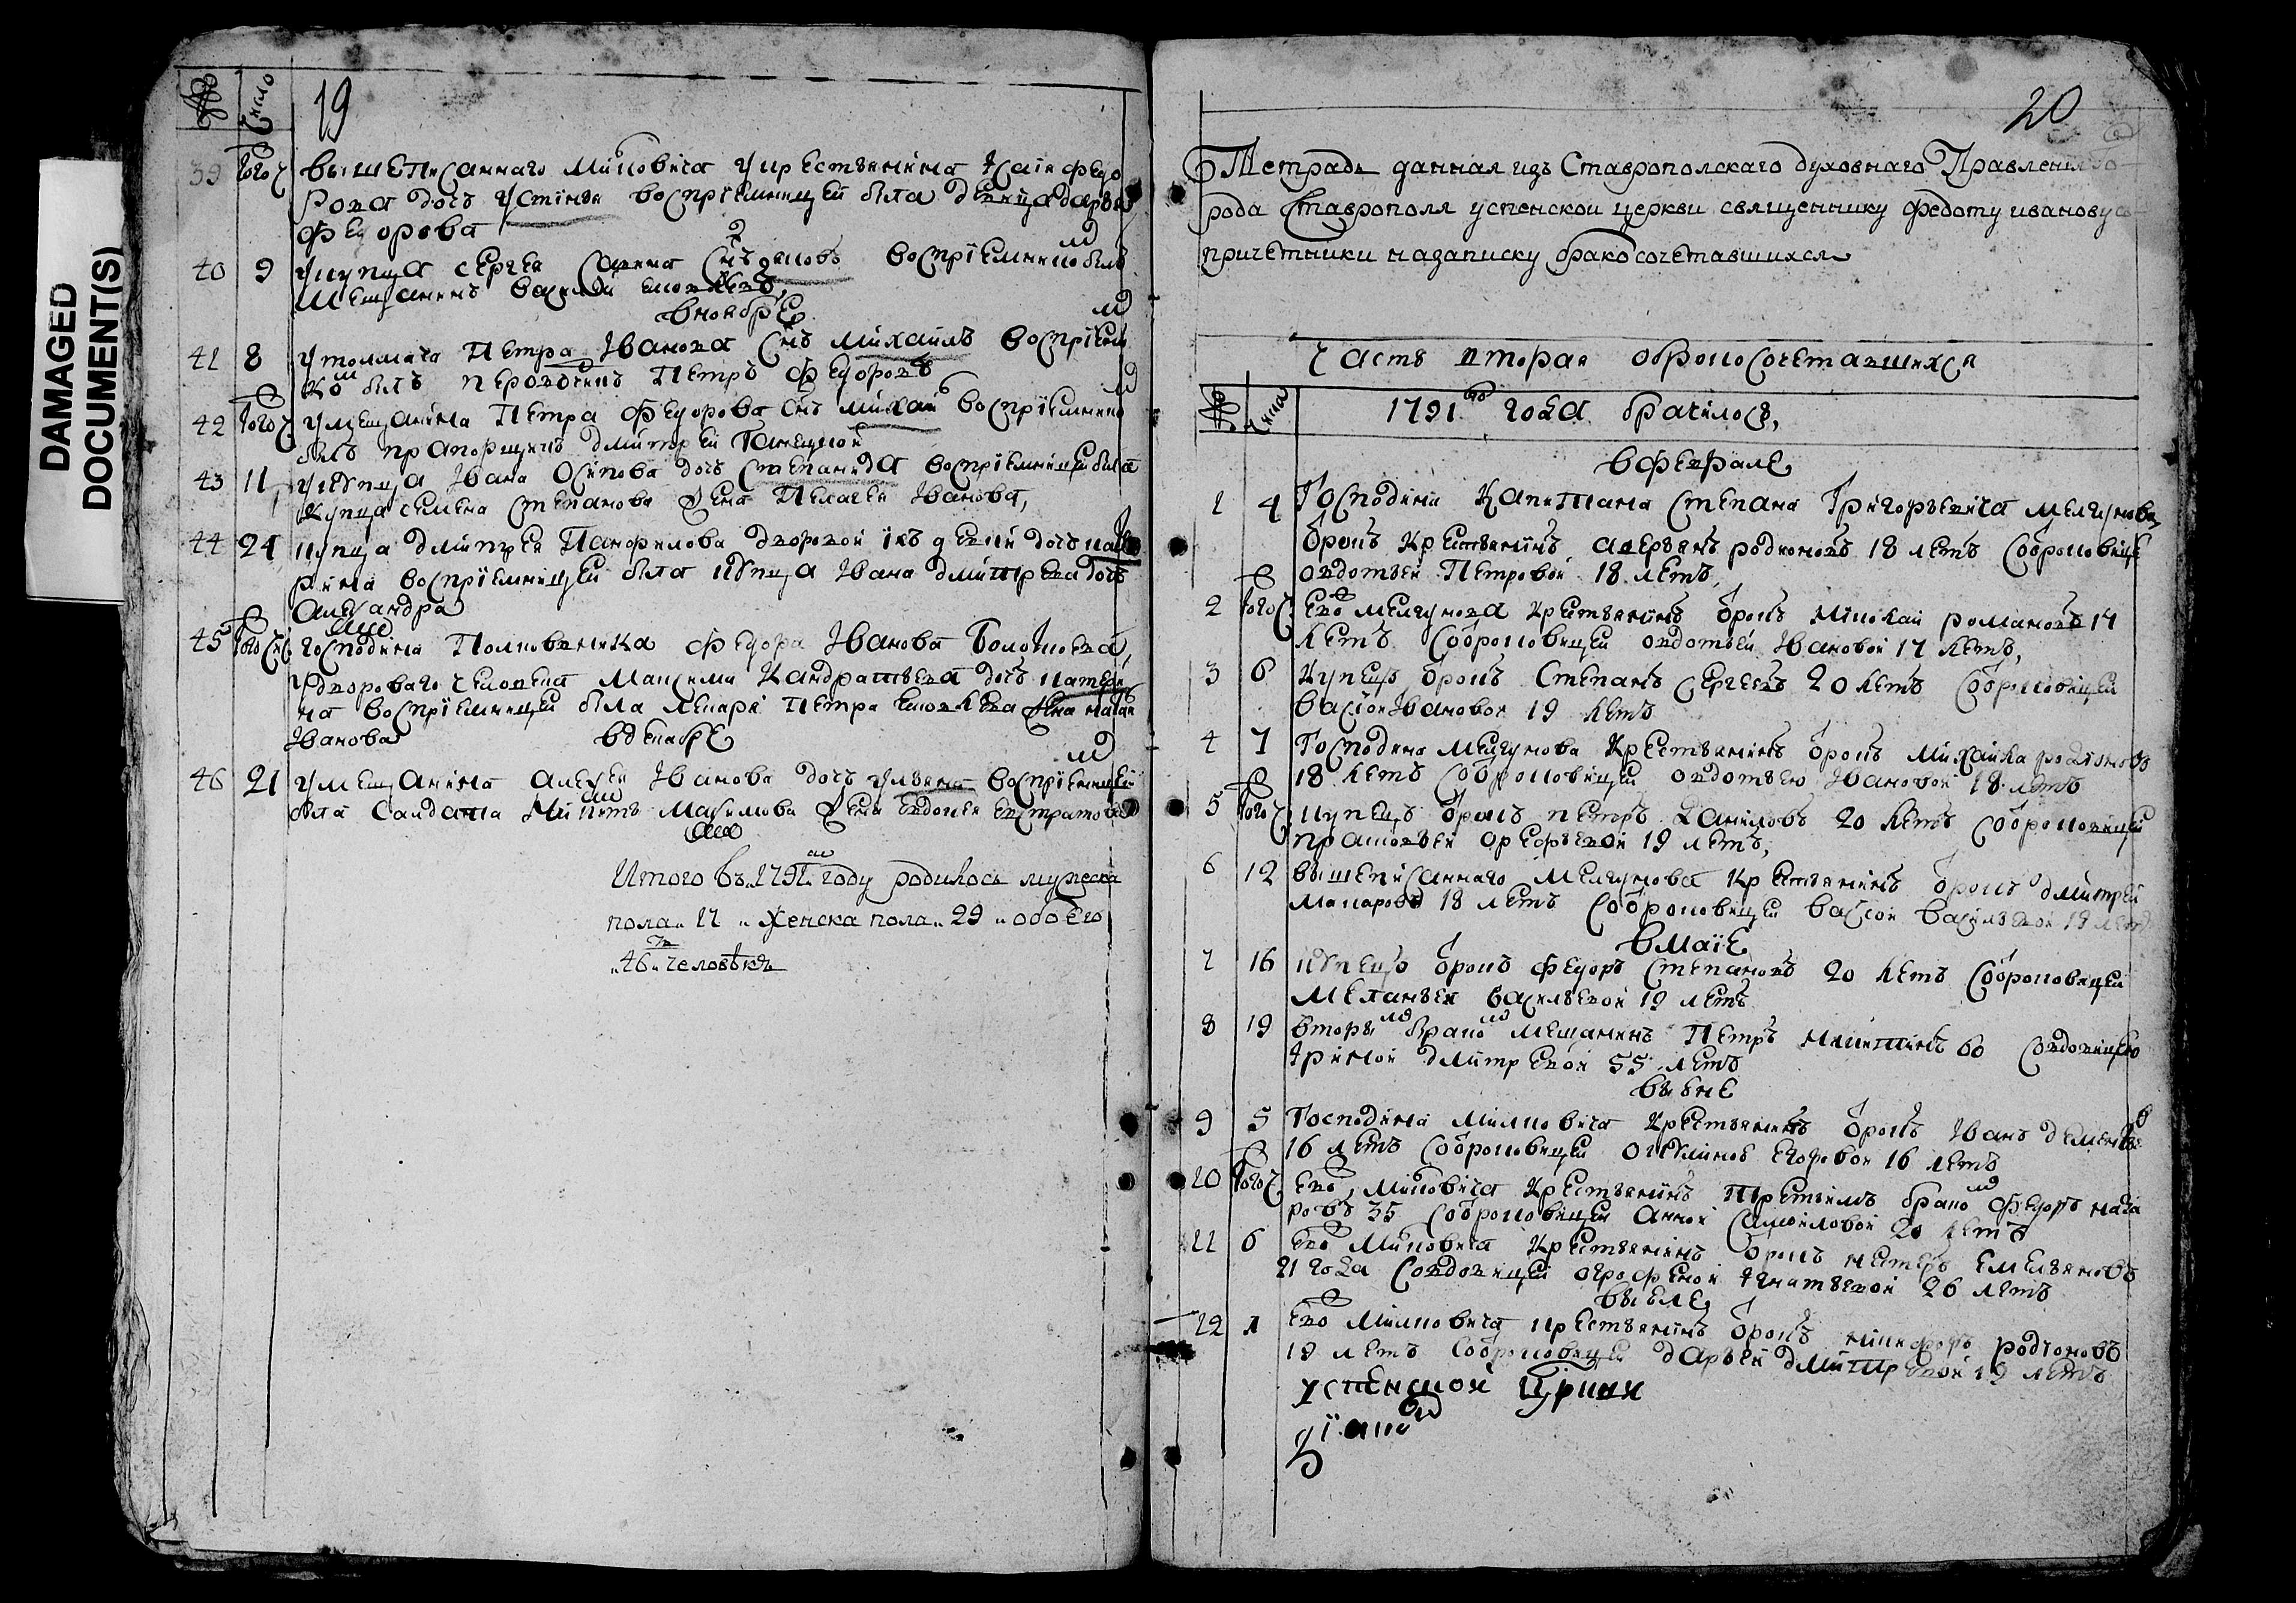 DAMAGED
DOCUMENT(S)
№ Число
19
39 того ж вышеписаннаго Милковича у крестьянина Исаи Федо
рова дочь Устинья воспрïемницей была девица Дарья
Федорова
40 9 у купца Сергея сынъ воспрïемникомъ былъ
мещанинъ Василей
в ноябрѣ
41 8 у толмача Петра Иванова сынъ Михаилъ воспрïем
комъ былъ Петръ Федоровъ
42 того ж у мещанина Петра Федорова сынъ Михаилъ воспрïемникомъ
былъ прапорщикъ Дмитрей
43 11 у купца Ивана Осипова дочь Степанида воспрïемницей была
купца Семена Степанова жена Пелагея Иванова,
44 24 купца Дмитрея Панфилова дворовой дочь Кате
рина воспрïемницей была купца Ивана Дмитрева дочь
Александра
45 того ж господина Полковника Федора Иванова
у двороваго человека Максима Кандратьева дочь Катери
на воспрïемницей была лекаря Петра жена
Иванова
в декабрѣ
46 21 у мещанина Алексея Иванова дочь Ульяна воспрïемницей
была салдата Максимова жена Евдокея Евстратова
Итого въ 1791м году родилось мужеска
пола 17 женска пола 29 обоего
46 человѣкъ
20
Тетрадь данная изъ Ставрополскаго духовнаго Правления го
рода Ставрополя успенской церкви священнику Федоту Иванову с
причетники на записку бракосочетавшихся
Часть вторая о бракосочетавшихся
№ Число
1791го года бračилось,
в феврале
1 4 Господина Капитана Степана Григорьевича Мелгунова
отрокъ крестьянинъ Аверьянъ Родионовъ 18 летъ с отроковицей
Овдотьей Петровой 18 летъ,
2 того ж ево Мелгунова крестьянинъ отрокъ Николай Романовъ 17
летъ с отроковицей Овдотьей Ивановой 17 летъ,
3 6 Купецъ отрокъ Степанъ Сергеевъ 20 летъ с отроковицей
Ивановой 19 летъ
4 7 Господина Мелгунова крестьянинъ отрокъ Михайла Родионовъ
18 летъ с отроковицей Овдотьею Ивановой 18 летъ
5 того ж купецъ отрокъ Петръ Даниловъ 20 летъ с отроковицей
Прасковьей 19 летъ,
6 12 вышеписаннаго Мелгунова крестьянинъ отрокъ Дмитрей
Макаровъ 18 летъ с отроковицей Васильевой 19 летъ
в маïе
7 16 купецъ отрокъ Федоръ Степановъ 20 летъ с отроковицей
Меланьей Васильевой 19 летъ
8 19 вторымъ бракомъ мещанинъ Петръ Никитинъ 60 со вдовицею
Ириной Дмитревой 55 летъ
в ыюне
9 5 Господина Милковича крестьянинъ отрокъ Иванъ Дементьевъ
16 летъ с отроковицей Окулиной Егоровой 16 летъ
10 того ж ево Милковича крестьянинъ третьимъ бракомъ Федоръ
35 с отроковицей Анной Самойловой 20 летъ
11 6 ево Милковича крестьянинъ отрокъ Нестеръ Емельяновъ
21 года со вдовицей Огрофеной Игнатьевой 26 летъ
в ыюле
12 1 ево Милковича крестьянинъ отрокъ Никифоръ Родионовъ
19 летъ с отроковицей Дарьей Дмитревой 19 летъ
успенской церкви